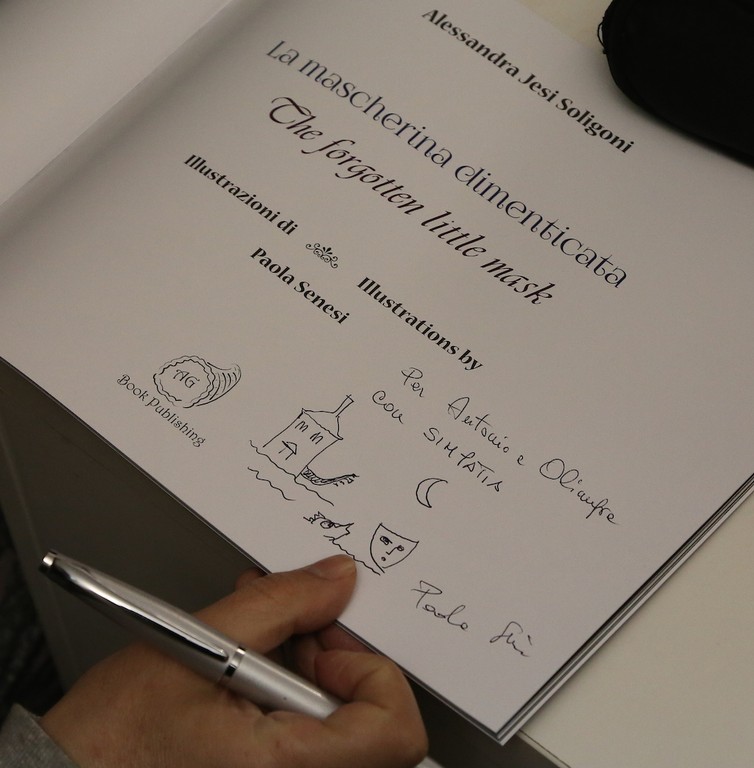 Alessandra Jesi Soligoni
La mascherina dimenticata
The forgotten little mask
Illustrazioni di
Illustrations by
Paola Senesi
AG
Book Publishing
Per Antonio e
con SIMPATIA